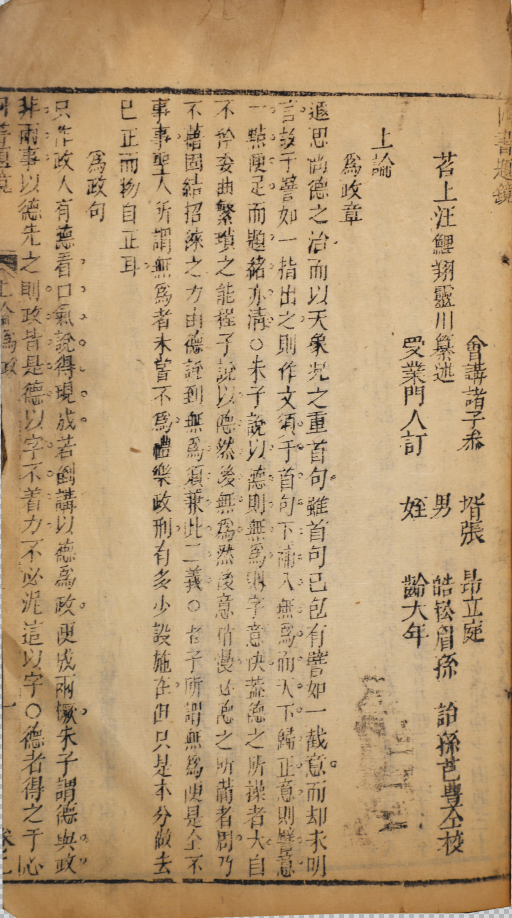 四書題鏡
會講諸子叅 壻張 昻立庭
苕上汪鯉翔靈川纂述 男 皓松眉孫 詒孫芑豊仝校
受業門人訂 姪 齡大年
上論
爲政章
遡思尚德之治而以天象况之重首句雖首句已包有譬如一截意而却未明
言故于譬如一指出之則作文須于首句下補入無爲而天下歸正意則譬意
一點便足而題緒亦淸○朱子說以德則無爲則字意快蓋德之所操者大自
不於委曲繁瑣之能程子說以德然後無爲然後意稍慢必德之所蓄者周乃
不藉固結招徠之力由德說到無爲須兼此二義○老子所謂無爲便是全不
事事聖人所謂無爲者未嘗不爲禮樂政刑有多少設施在但只是本分做去
已正而物自正耳
爲政句
只作政人有德看口氣說得現成若倒講以德爲政便成兩橛朱子謂德與政
非兩事以德先之則政皆是德以字不着力不必泥這以字○德者得之于心
四書題鏡 上論爲政 一